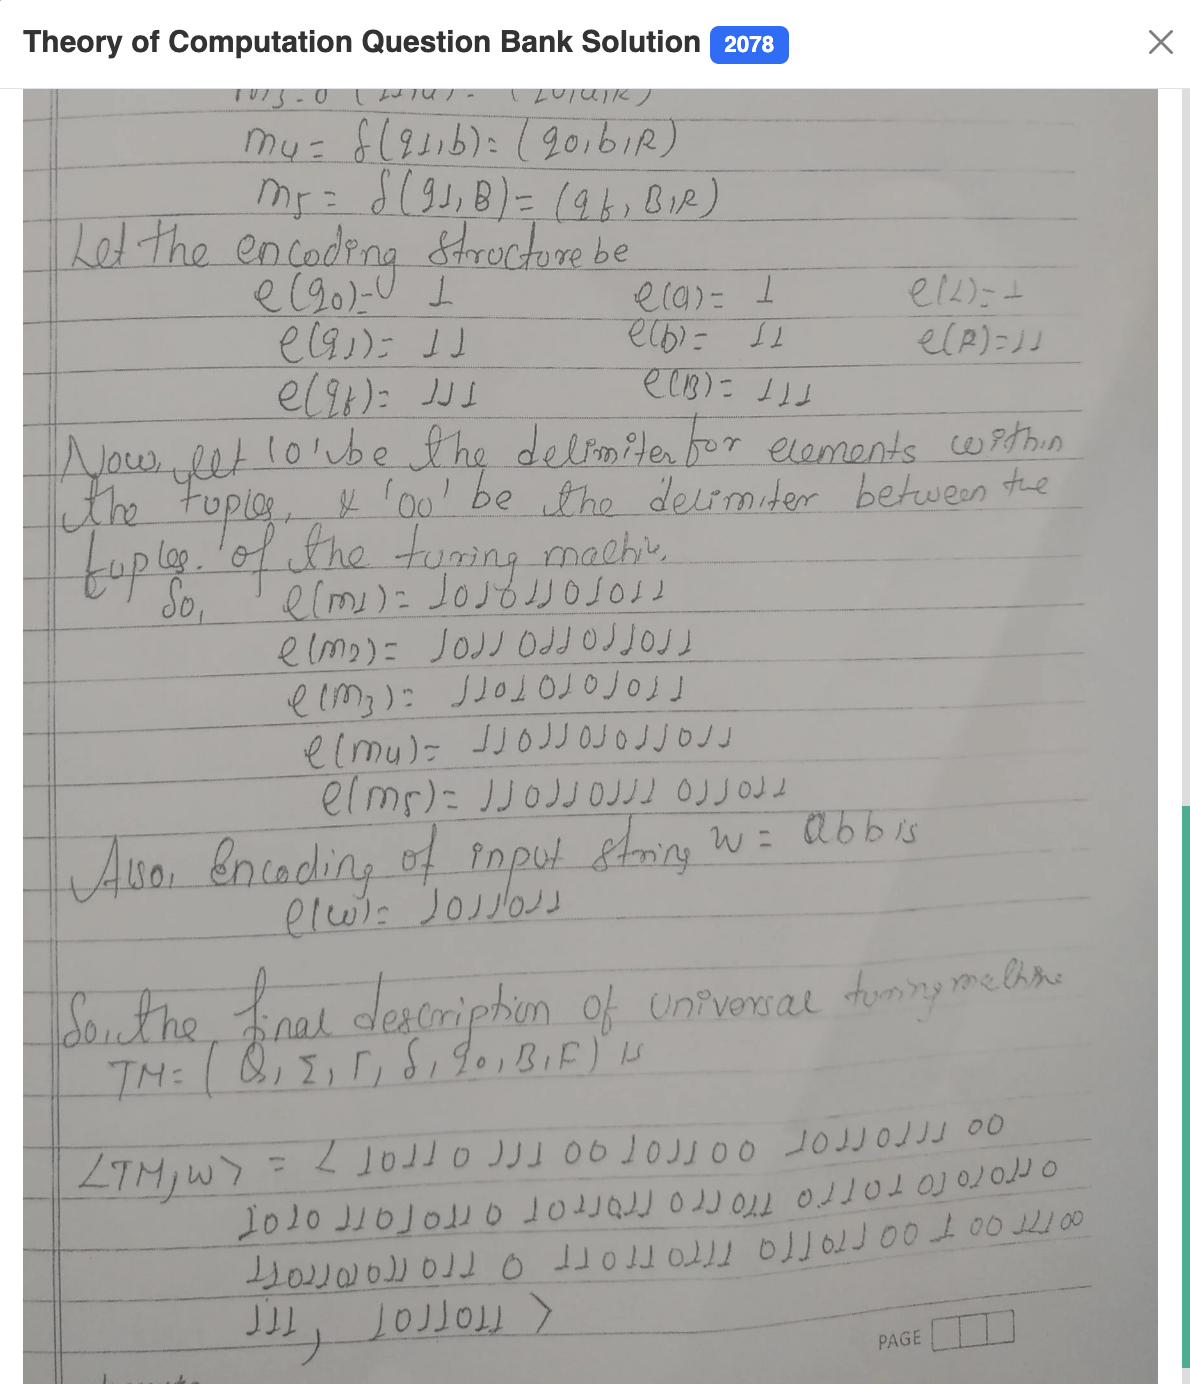 Theory of Computation Question Bank Solution 2078
m4 = δ(q1,b) = (q0,b,R)
m5 = δ(q1,B) = (qf,B,R)
Let the encoding structure be
e(q0) = 1 e(a) = 1 e(L) = 1
e(q1) = 11 e(b) = 11 e(R) = 11
e(qf) = 111 e(B) = 111
Now, let '0' be the delimiter for elements within
the tuples, & '00' be the delimiter between the
tuples. of the turing machine.
So, e(m1) = 10101101011
e(m2) = 1011011011011
e(m3) = 11010101011
e(m4) = 1101101011011
e(m5) = 110110111011011
Also, Encoding of input string w = abb is
e(w) = 1011011
So, the final description of universal turing machine
TM = (Q, Σ, Γ, δ, q0, B, F) is
<TM, w> = < 10110 111 00 101100 10110111 00
111, 1011011 >
PAGE